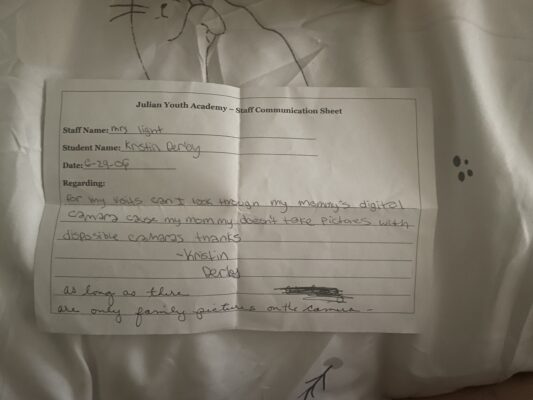 Julian Youth Academy ~ Staff Communication Sheet
Staff Name: mrs light
Student Name: Kristin Derby
Date: 6-29-06
Regarding:
for my visits can I look though my mommy's digital
camara cause my mommy doesn't take pictures with
disposible camaras thanks
~Kristin
Derby
as long as there
are only family pictures on the camera -